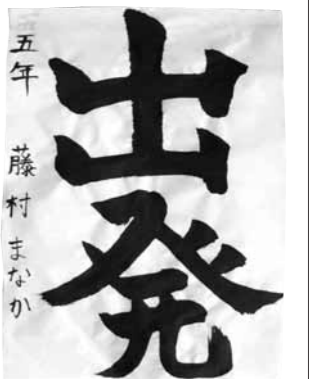 出発
五年 藤村まなか